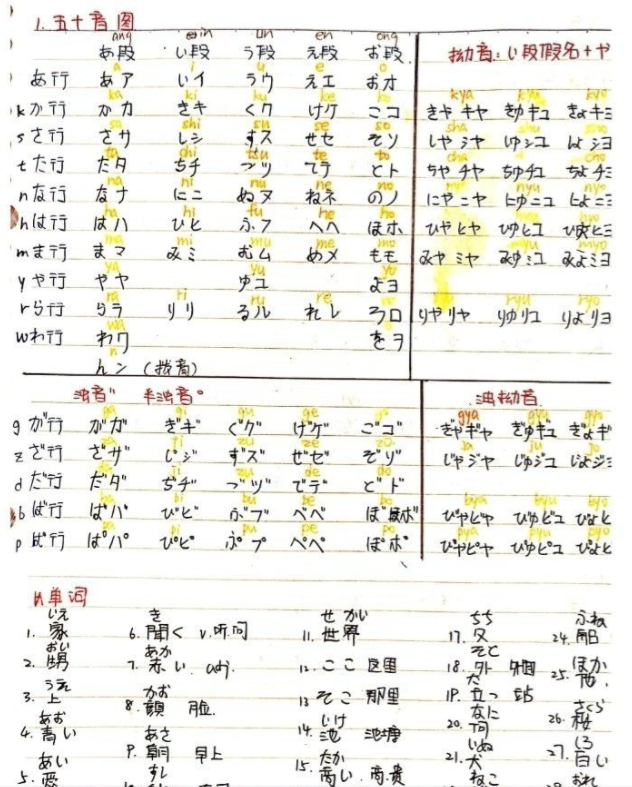 1.五十音图
ang ein un en ong
あ段 い段 う段 え段 お段
a i u e o
あ行 あア いイ うウ えエ おオ
ka ki ku ke ko
kか行 かカ きキ くク けケ こコ
sa shi su se so
sさ行 さサ しシ すス せセ そソ
ta chi tsu te to
tた行 たタ ちチ つツ てテ とト
na ni nu ne no
nな行 なナ にニ ぬヌ ねネ のノ
ha hi fu he ho
hは行 はハ ひヒ ふフ へヘ ほホ
ma mi mu me mo
mま行 まマ みミ むム めメ もモ
ya yu yo
yや行 やヤ ゆユ よヨ
ra ri ru re
rら行 らラ りリ るル れレ ろロ
wa
wわ行 わワ をヲ
n
んン (拨音)
拗音:い段假名+ヤ
kya kyu kyo
きゃキャ きゅキュ きょキョ
sha shu sho
しゃシャ しゅシュ しょショ
cha cho
ちゃチャ ちゅチュ ちょチョ
nyu nyo
にゃニャ にゅニュ にょニョ
ひゃヒャ ひゅヒュ ひょヒョ
myu myo
みゃミャ みゅミュ みょミョ
ryu ryo
りゃリャ りゅリュ りょリョ
浊音" 半浊音°
ga gi gu ge
gが行 がガ ぎギ ぐグ げゲ ごゴ
zu ze zo
zざ行 ざザ じジ ずズ ぜゼ ぞゾ
de do
dだ行 だダ ぢヂ づヅ でデ どド
bi bu be bo
bば行 ばバ びビ ぶブ べベ ぼボ
pi pu pe po
pぱ行 ぱパ ぴピ ぷプ ぺペ ぽポ
浊拗音
gya gyu gyo
ぎゃギャ ぎゅギュ ぎょギ
ja ju jo
じゃジャ じゅジュ じょジョ
bya byu byo
びゃビャ びゅビュ びょビ
pya pyu pyo
ぴゃピャ ぴゅピュ ぴょピ
单词
いえ
1. 家
おい
2. 甥
うえ
3. 上
あお
4. 青い
あい
5. 愛
き
6. 聞く v.听.问
あか
7. 赤い
かお
8. 顔 脸
あさ
9. 朝 早上
すし
せかい
11. 世界
12. ここ 这里
13. そこ 那里
いけ
14. 池 池塘
たか
15. 高い 高.贵
ちち
17. 父
そと
18. 外
た
19. 立つ 站
なに
20. 何
いぬ
21. 犬
ねこ
ふね
24. 船
ほか
25. 他
さくら
26. 桜
しろ
27. 白い
おれ